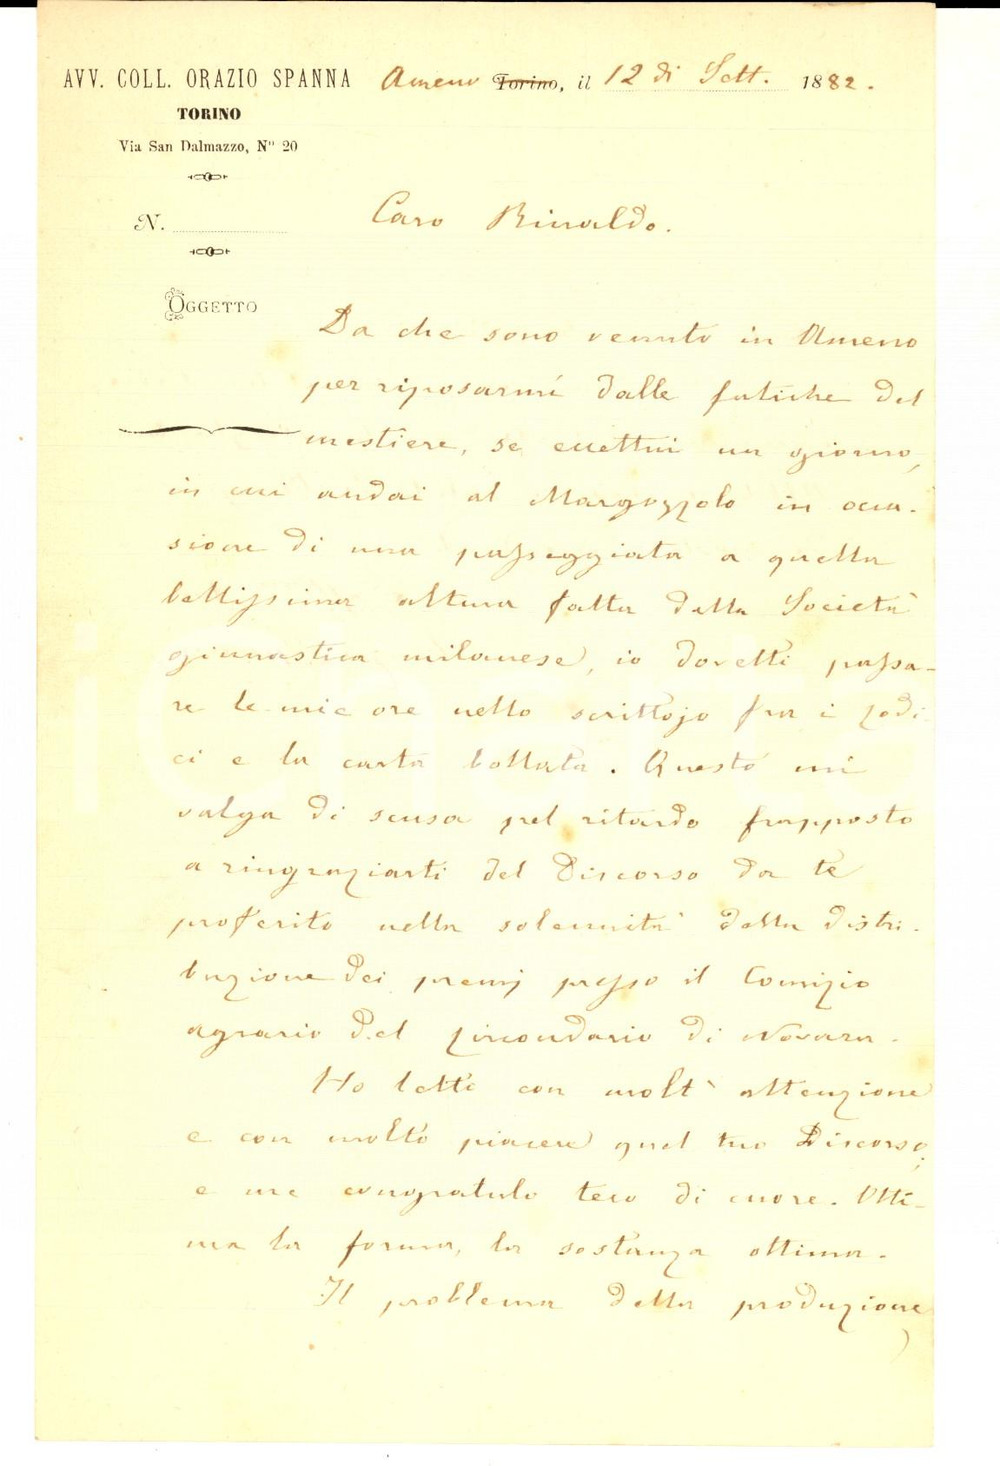 AVV. COLL. ORAZIO SPANNA Ameno Torino, il 12 di Sett. 1882.
TORINO
Via San Dalmazzo, N° 20
N.
Caro Rinaldo.
OGGETTO
Da che sono venuto in Ameno
per riposarmi dalle fatiche del
mestiere, se eccettui un giorno,
in cui andai al Margozzolo in occa-
sione di una passeggiata a quella
bellissima altura fatta dalla Società
ginnastica milanese, io dovetti passa-
re le mie ore nello scrittojo fra i codi
ci e la carta bollata. Questo mi
valga di scusa pel ritardo frapposto
a ringraziarti del Discorso da te
proferito nella solennità della distri-
buzione dei premj presso il Comizio
agrario del Circondario di Novara.
Ho letto con molt' attenzione
e con molto piacere quel tuo Discorso;
e me congratulo teco di cuore. Otti-
ma la forma, la sostanza ottima.
Il problema della produzione